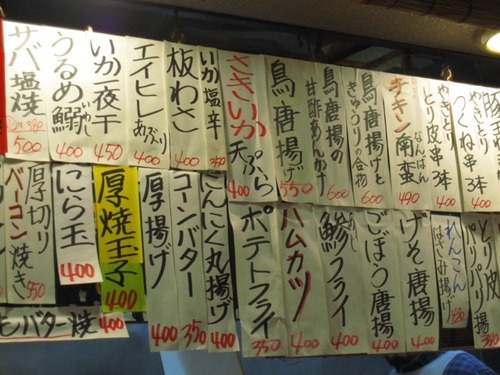 サバ塩焼
500
うるめ鰯
いわし
400
いか一夜干
450
エイヒレあぶり
400
板わさ
400
いか塩辛
350
さきいか天ぷら
400
鳥唐揚げ
550
鳥唐揚げの
甘酢あんかけ
600
鳥唐揚げと
きゅうりの合物
600
チキン南蛮
なんばん
490
やきとり
とり皮串3本
400
やきとり
つくね串3本
400
厚切り
ベーコン焼き
550
にら玉
400
厚焼玉子
400
厚揚げ
400
コーンバター
350
にんにく丸揚げ
400
ポテトフライ
350
ハムカツ
400
鯵フライ
あじ
400
ごぼう唐揚
400
げそ唐揚
400
れんこん
はさみ揚げ
とり皮
パリパリ揚
バター焼
400